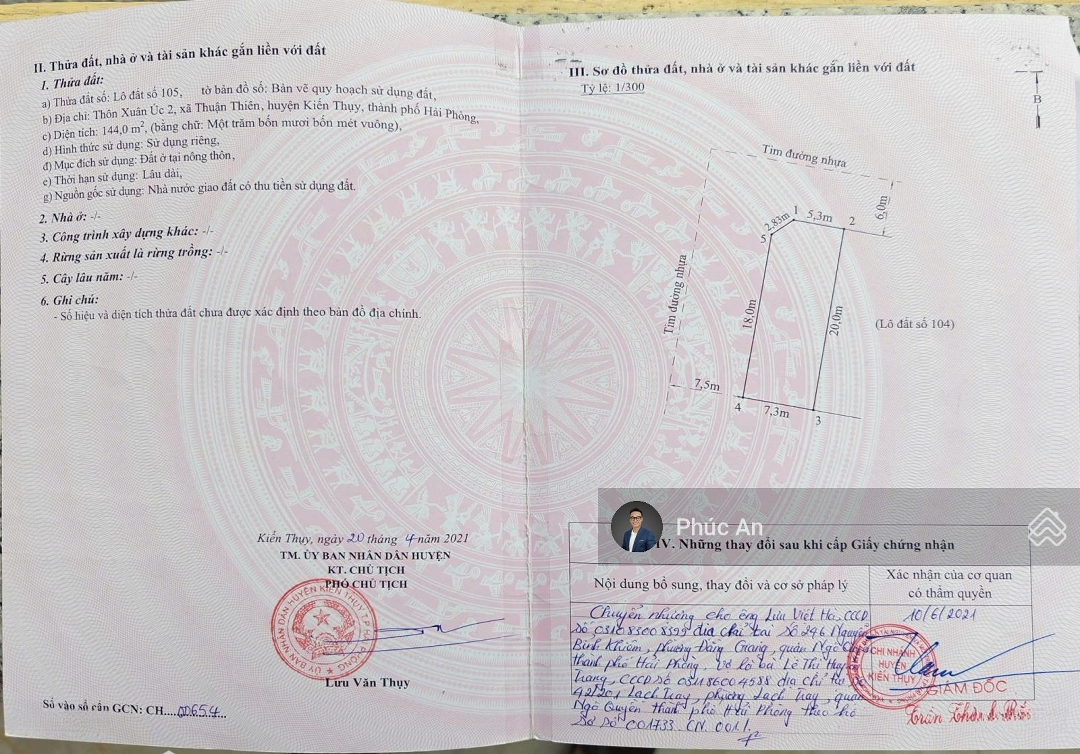 II. Thửa đất, nhà ở và tài sản khác gắn liền với đất
1. Thửa đất:
a) Thửa đất số: Lô đất số 105, tờ bản đồ số: Bản vẽ quy hoạch sử dụng đất,
b) Địa chỉ: Thôn Xuân Úc 2, xã Thuận Thiên, huyện Kiến Thụy, thành phố Hải Phòng,
c) Diện tích: 144,0 m², (bằng chữ: Một trăm bốn mươi bốn mét vuông),
d) Hình thức sử dụng: Sử dụng riêng,
đ) Mục đích sử dụng: Đất ở tại nông thôn,
e) Thời hạn sử dụng: Lâu dài,
g) Nguồn gốc sử dụng: Nhà nước giao đất có thu tiền sử dụng đất.
2. Nhà ở: -/-
3. Công trình xây dựng khác: -/-
4. Rừng sản xuất là rừng trồng: -/-
5. Cây lâu năm: -/-
6. Ghi chú:
- Số hiệu và diện tích thửa đất chưa được xác định theo bản đồ địa chính.
Kiến Thụy, ngày 20 tháng 4 năm 2021
TM. ỦY BAN NHÂN DÂN HUYỆN
KT. CHỦ TỊCH
PHÓ CHỦ TỊCH
ỦY BAN NHÂN DÂN HUYỆN KIẾN THỤY T.P HẢI PHÒNG
Lưu Văn Thụy
Số vào sổ cấp GCN: CH....00654...
III. Sơ đồ thửa đất, nhà ở và tài sản khác gắn liền với đất
Tỷ lệ: 1/300
B
Tim đường nhựa
6,0m
2,83m
1
5,3m
2
5
Tim đường nhựa
18,0m
20,0m
(Lô đất số 104)
7,5m
4
7,3m
3
Phúc An
IV. Những thay đổi sau khi cấp Giấy chứng nhận
Nội dung bổ sung, thay đổi và cơ sở pháp lý
Xác nhận của cơ quan
có thẩm quyền
Chuyển nhượng cho ông Lưu Việt Hà, CCCD
Số 031083008395 địa chỉ tại Số 246 Nguyễn
Bỉnh Khiêm, phường Đằng Giang, quận Ngô Quyền
thành phố Hải Phòng, Vợ là bà Lê Thị Huyền
Trang, CCCD Số địa chỉ tại Số
42/201 Lạch Tray, phường Lạch Tray, quận
Ngô Quyền thành phố Hải Phòng theo hồ
Sơ Số 001733.CN.001.
10/6/2021
CHI NHÁNH
HUYỆN
KIẾN THỤY
GIÁM ĐỐC
Trần